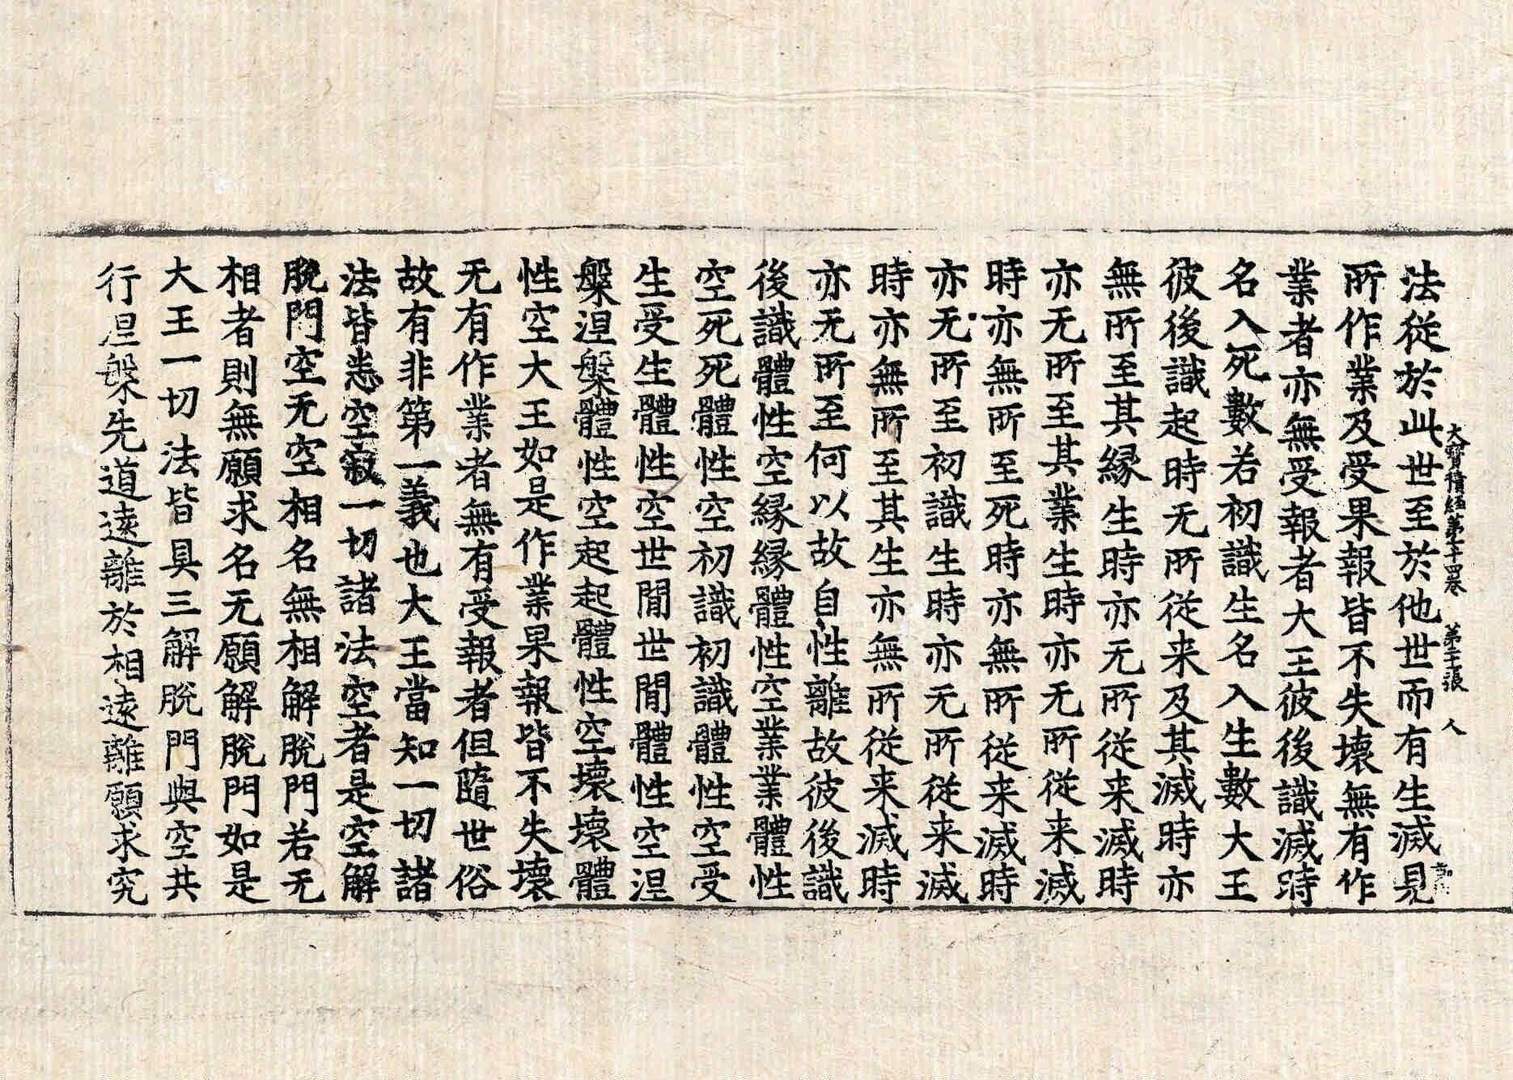 大寶積經第七十四卷 第二十張 人
法從於此世至於他世而有生滅見
所作業及受果報皆不失壞無有作
業者亦無受報者大王彼後識滅時
名入死數若初識生名入生數大王
彼後識起時无所從来及其滅時亦
無所至其緣生時亦无所從来滅時
亦无所至其業生時亦无所從来滅
時亦無所至死時亦無所從来滅時
亦无所至初識生時亦无所從来滅
時亦無所至其生亦無所從来滅時
亦无所至何以故自性離故彼後識
後識體性空緣緣體性空業業體性
空死死體性空初識初識體性空受
生受生體性空世閒世閒體性空涅
槃涅槃體性空起起體性空壞壞體
性空大王如是作業果報皆不失壞
无有作業者無有受報者但隨世俗
故有非第一義也大王當知一切諸
法皆悉空寂一切諸法空者是空解
脫門空无空相名無相解脫門若无
相者則無願求名无願解脫門如是
大王一切法皆具三解脫門與空共
行涅槃先道遠離於相遠離願求究